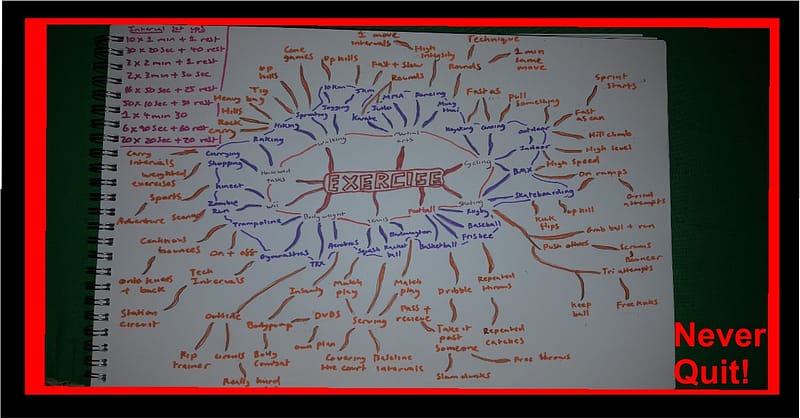 Interval Set ups
10 x 1 min + 1 rest
30 x 20 sec + 40 rest
3 x 2 min + 1 rest
2 x 3 min + 30 sec
16 x 50 sec + 25 rest
50 x 10 sec + 30 rest
1 x 4 min 30
6 x 90 sec + 60 rest
20 x 20 sec + 20 rest
EXERCISE
Walking
Martial arts
Cycling
Skating
Football
Tennis
Body weight
Wii
tasks
Hiking
Sprinting
Jogging
10km
5km
Karate
Judo
MMA
Dancing
Muay thai
Kayaking
Canoeing
outdoor
Indoor
BMX
Skateboarding
Rugby
Baseball
Frisbee
Basketball
Badmington
Squash
Racket ball
Aerobics
TRX
Gymnastics
Trampoline
Zombie Run
Kinect
Shopping
Carrying
Raking
Cone games
up hills
Up hills
1 move intervals
High intensity
Fast + slow
Rounds
Technique
Rounds
1 min same move
Fast as
Pull something
Sprint starts
Fast as can
Hill climb
High level
High speed
On ramps
Grind attempts
up hill
Kick flips
Grab ball + run
Push others
Scrums
Bouncer
Tri attempts
Keep ball
Free kicks
Repeated throws
Repeated catches
Free throws
Dribble
Take it past someone
Slam dunks
Match play
Pass + recieve
Match play
Serving
Covering the court
Baseline intervals
Insanity
DVDs
own plan
Bodypump
Body Combat
Outside
Rip trainer
Circuits
Really hard
Tech Intervals
On + off
Continous bounces
Onto knees + back
Station circuit
Adventure
Sports
Weighted exercises
Carry intervals
Rock carry
Hills
Heavy bag
Tig
Never
Quit!